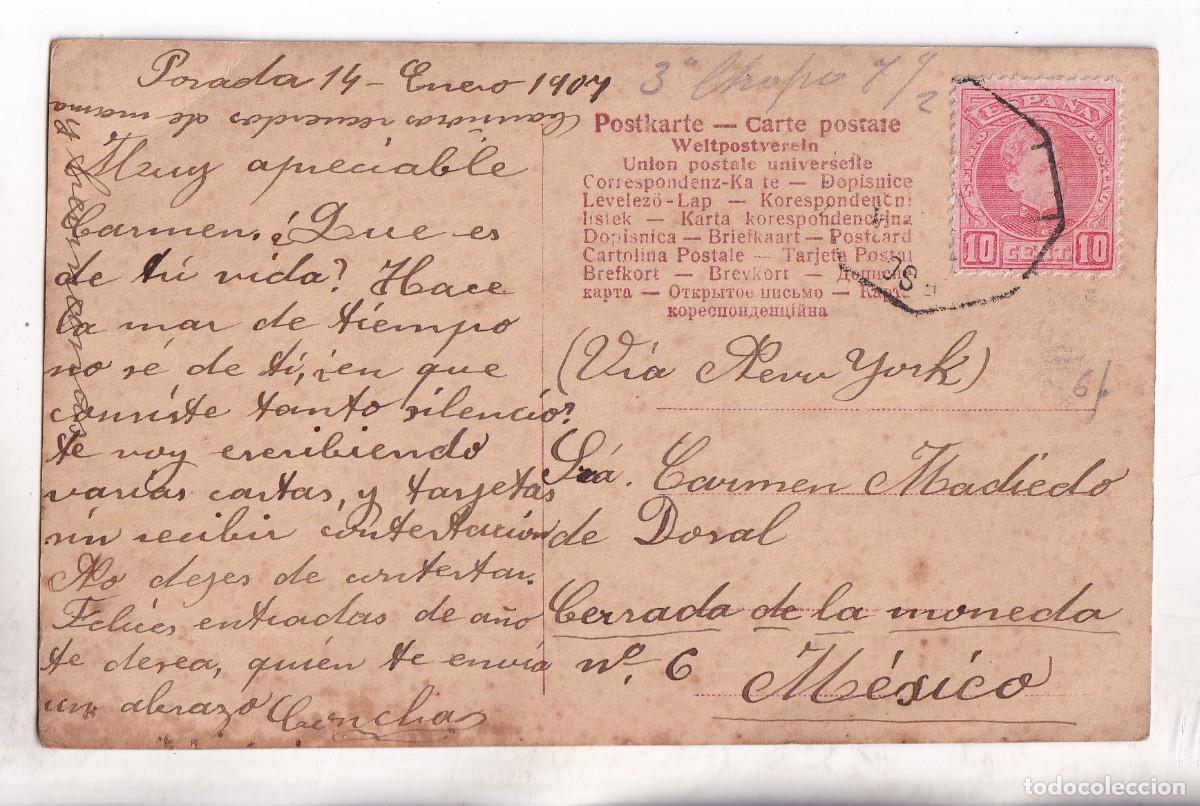 Posada 14 - Enero 1907
Cariñosos recuerdos de mama
y
Muy apreciable
Carmen: ¿Que es
de tú vida? Hace
la mar de tiempo
no sé de tí, ¿en que
consiste tanto silencio?
te voy escribiendo
varias cartas, y tarjetas
sin recibir contestación
No dejes de contestar.
Felices entradas de año
te desea, quién te envía
un abrazo Concha
3º Chopo 7 1/2
Postkarte — Carte postale
Weltpostverein
Union postale universelle
Correspondenz-Karte — Dopisnice
Levelező-Lap — Korespondenční
lístek — Karta korespondencyjna
Dopisnica — Briefkaart — Postcard
Cartolina Postale — Tarjeta Postal
Brefkort — Brevkort — Дописна
карта — Открытое письмо — Карте
кореспонденційна
ESPAÑA
10 CENT 10
(Vía New York)
Sra. Carmen Madiedo
de Dosal
Cerrada de la moneda
nº. 6
México
todocoleccion